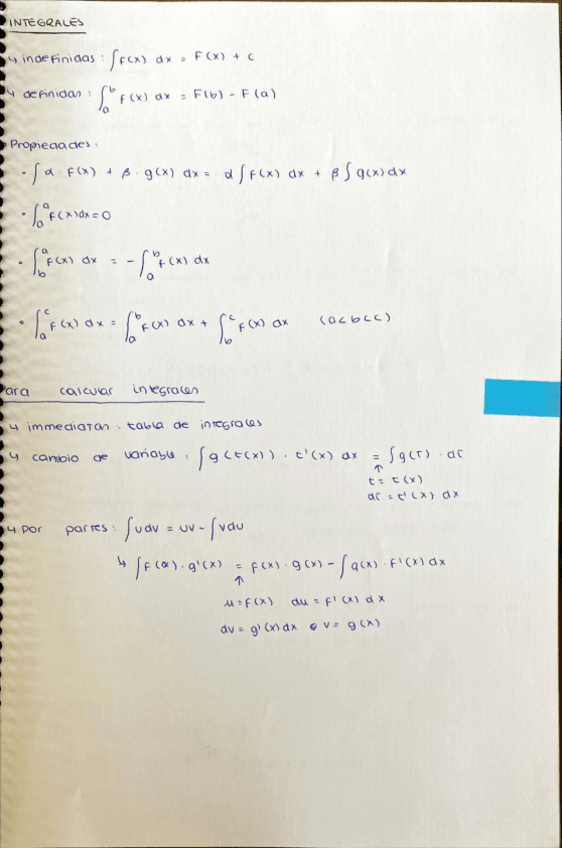 INTEGRALES
↳ indefinidas: ∫f(x) dx = F(x) + c
↳ definidas: ∫_a^b f(x) dx = F(b) - F(a)
Propiedades:
• ∫α · f(x) + β · g(x) dx = α∫f(x) dx + β∫g(x)dx
• ∫_a^a f(x)dx = 0
• ∫_b^a f(x) dx = -∫_a^b f(x) dx
• ∫_a^c f(x) dx = ∫_a^b f(x) dx + ∫_b^c f(x) dx (a<b<c)
ara calcular integrales
↳ immediatas: tabla de integrales
↳ cambio de variable: ∫g(t(x)) · t'(x) dx = ∫g(t) · dt
↑
t = t(x)
dt = t'(x) dx
↳ por partes: ∫udv = uv - ∫vdu
↳ ∫f(x) · g'(x) = f(x) · g(x) - ∫g(x) · f'(x) dx
↑
u = f(x) du = f'(x) dx
dv = g'(x) dx v = g(x)